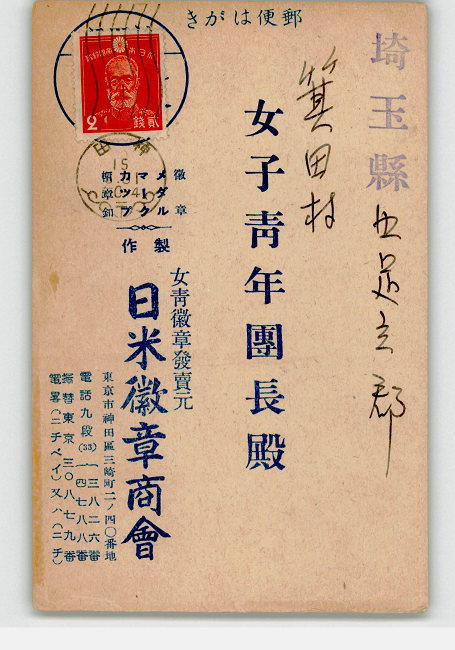 郵便はがき
埼玉縣北足立郡
箕田村
女子青年團長殿
大日本帝國郵便
貳錢
2
神田
15
徽章
メダル
マーク
カップ
帽章
製作
女青徽章發賣元
日米徽章商會
東京市神田區三崎町二ノ四〇番地
電話九段(33)一三八二六番
一四七八八番
振替東京三〇八七九番
電畧(ニチベイ)又ハ(ニチ)